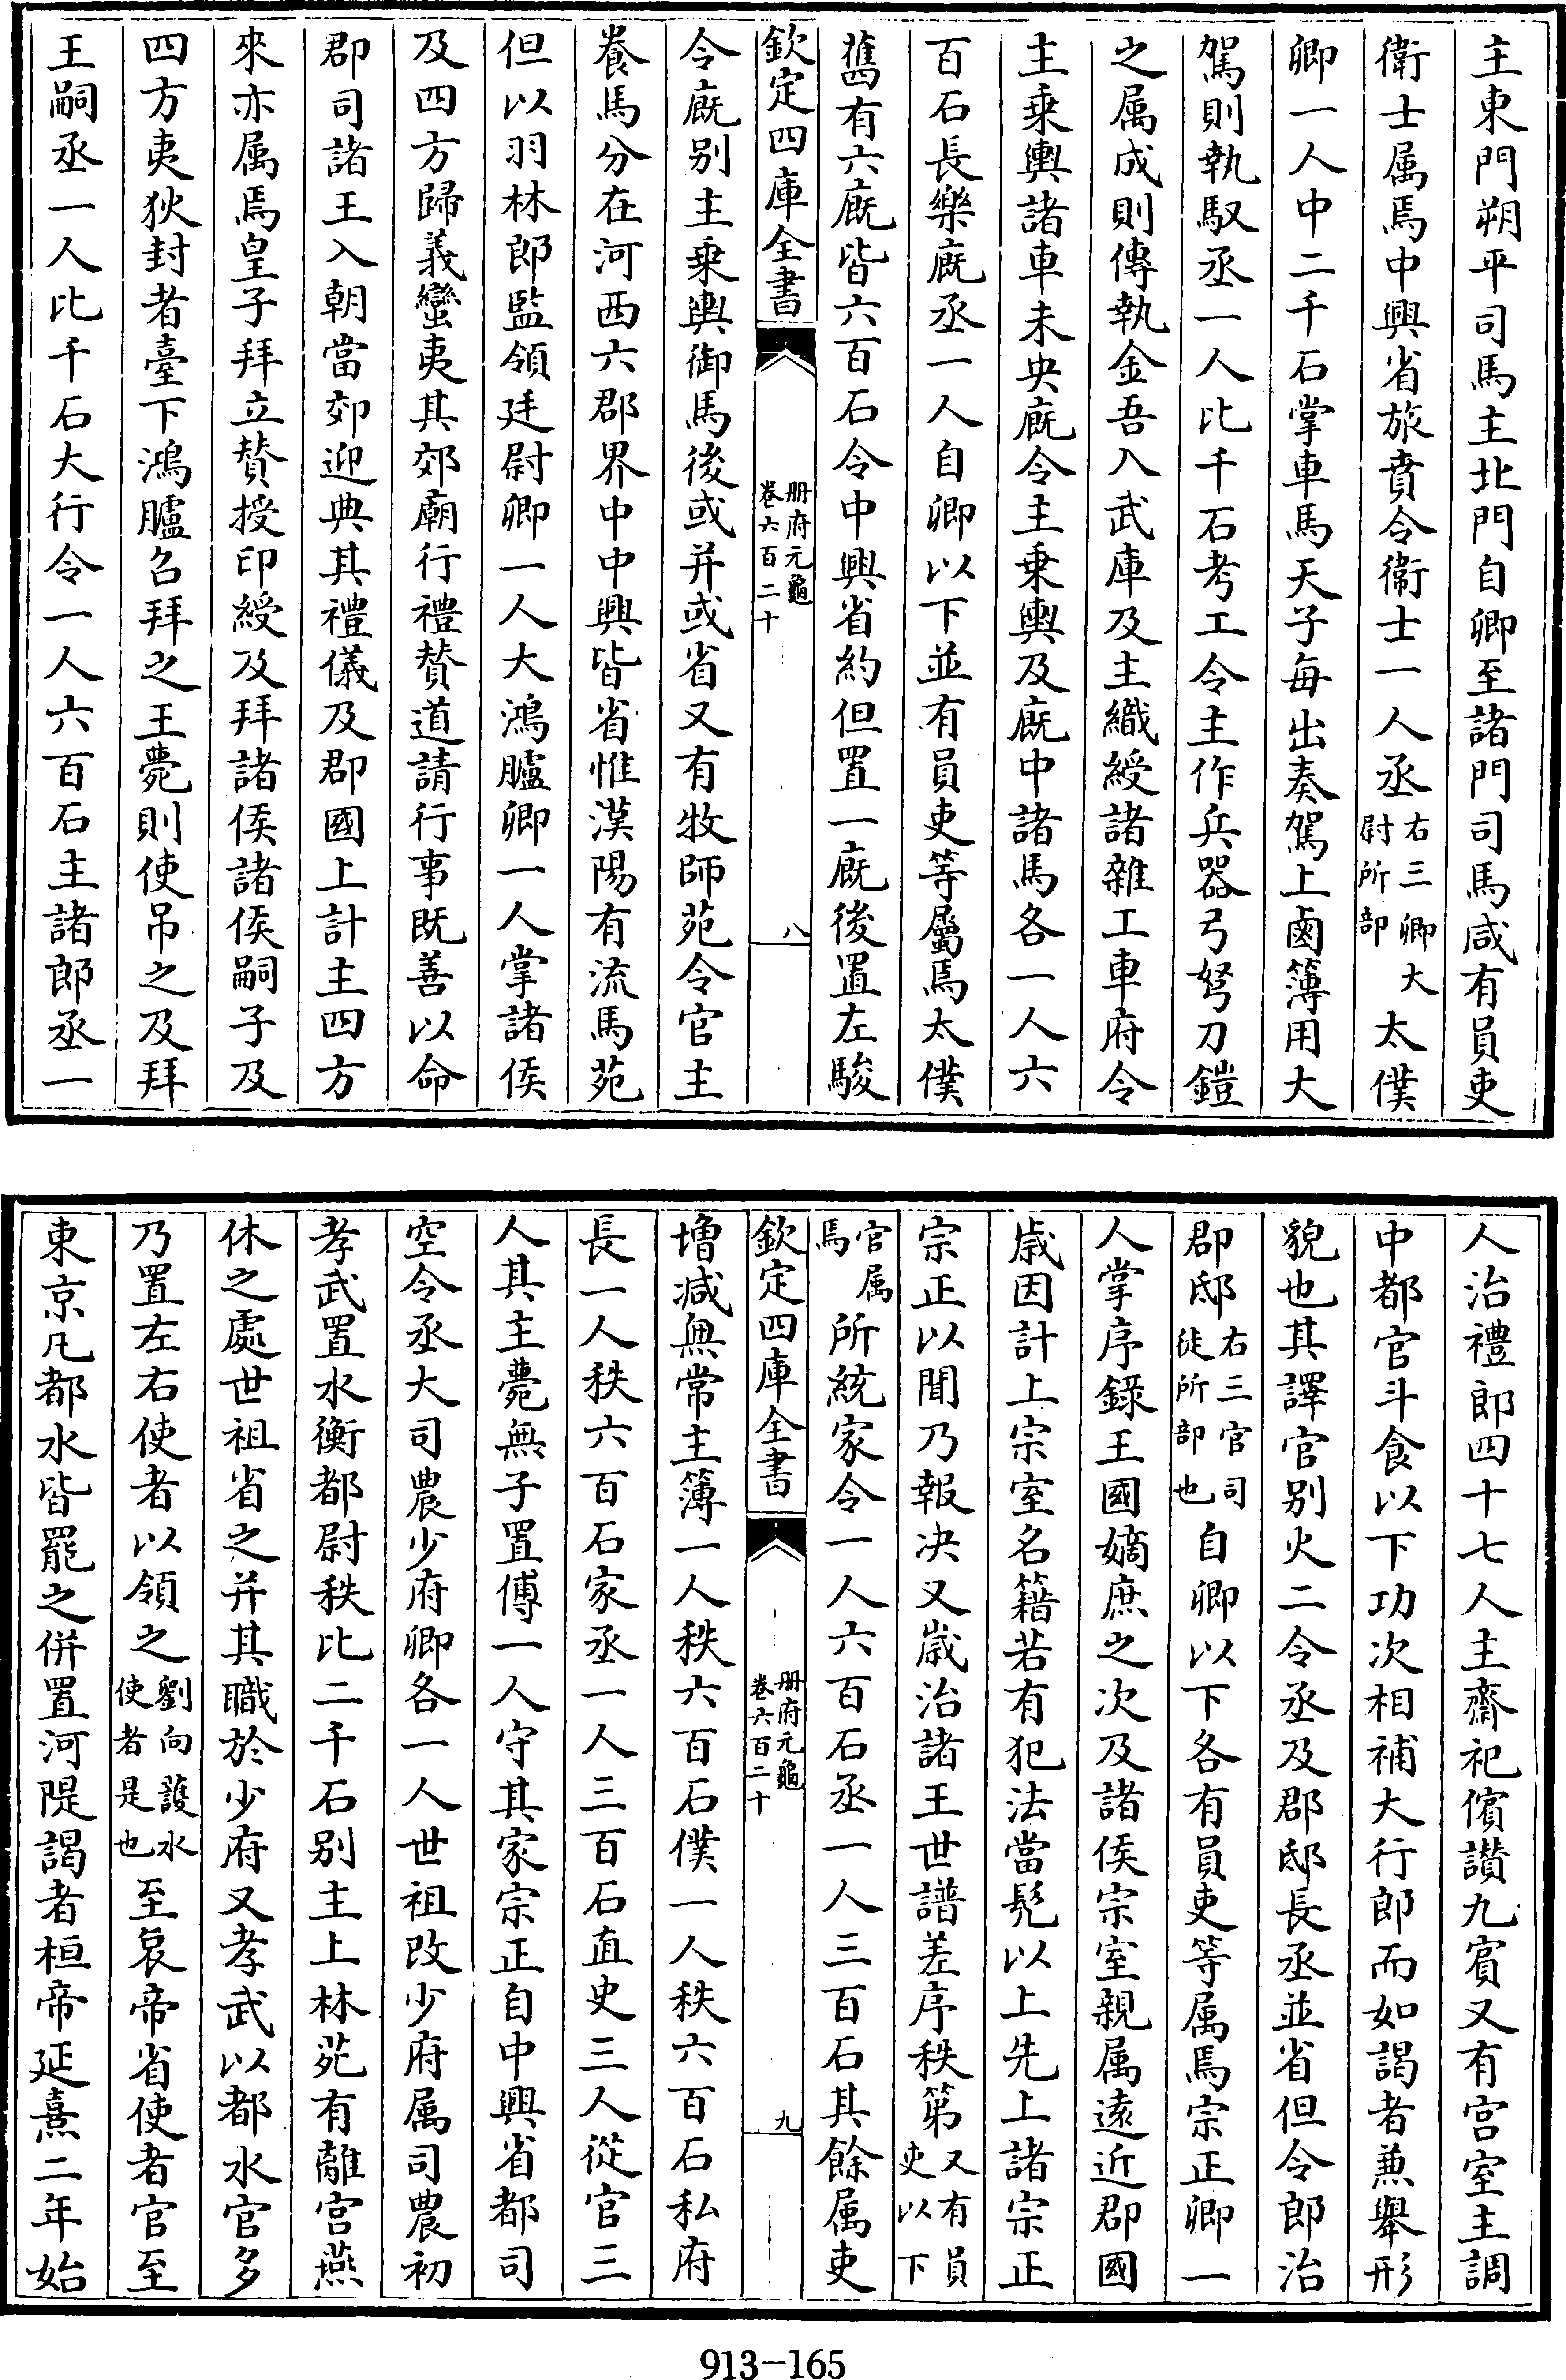 主東門朔平司馬主北門自卿至諸門司馬咸有員吏
衛士属焉中興省旅賁令衛士一人丞右三卿大尉所部太僕
卿一人中二千石掌車馬天子每出奏駕上鹵簿用大
駕則執馭丞一人比千石考工令主作兵器弓弩刀鎧
之属成則傳執金吾入武庫及主織綬諸雜工車府令
主乗輿諸車未央廐令主乗輿及廐中諸馬各一人六
百石長樂廐丞一人自卿以下並有員吏等屬焉太僕
舊有六廐皆六百石令中興省約但置一廐後置左駿
欽定四庫全書
册府元龜
卷六百二十
八
令廐别主乗輿御馬後或并或省又有牧師苑令官主
養馬分在河西六郡界中中興皆省惟漢陽有流馬苑
但以羽林郎監領廷尉卿一人大鴻臚卿一人掌諸侯
及四方歸義蠻夷其郊廟行禮賛道請行事既善以命
郡司諸王入朝當郊迎典其禮儀及郡國上計主四方
來亦属焉皇子拜立賛授印綬及拜諸侯諸侯嗣子及
四方夷狄封者臺下鴻臚召拜之王薨則使吊之及拜
王嗣丞一人比千石大行令一人六百石主諸郎丞一
人治禮郎四十七人主齋祀儐讃九賓又有宫室主調
中都官斗食以下功次相補大行郎而如謁者兼舉形
貌也其譯官别火二令丞及郡邸長丞並省但令郎治
郡邸右三官司徒所部也自卿以下各有員吏等属焉宗正卿一
人掌序錄王國嫡庶之次及諸侯宗室親属遠近郡國
歳因計上宗室名籍若有犯法當髠以上先上諸宗正
宗正以聞乃報决又歳治諸王世譜差序秩第又有員吏以下
官属焉所統家令一人六百石丞一人三百石其餘属吏
欽定四庫全書
册府元龜
卷六百二十
九
増减無常主簿一人秩六百石僕一人秩六百石私府
長一人秩六百石家丞一人三百石直史三人從官三
人其主薨無子置傅一人守其家宗正自中興省都司
空令丞大司農少府卿各一人世祖改少府属司農初
孝武置水衡都尉秩比二千石别主上林苑有離宫燕
休之處世祖省之并其職於少府又孝武以都水官多
乃置左右使者以領之劉向護水使者是也至哀帝省使者官至
東京凡都水皆罷之併置河隄謁者桓帝延熹二年始
913-165